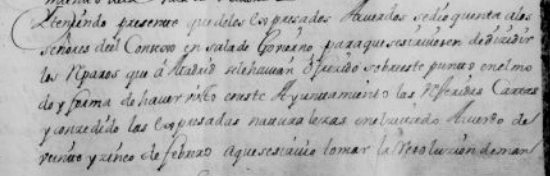 Atendiendo presente que delos Expresados Acuerdos sedio quenta alos
señores del Consexo en sala de Govierno para que sesirviesen de dezidir
los Reparos que á Madrid sele havian ofrezido sobre este punto en el mo
do y forma de haver visto en este Ayuntamiento las Referidas Cartas
y conzedido las Expresadas naturalezas en el zitado Acuerdo de
veinte y zinco de febrero a que se sirvio tomar la Resoluzion de man